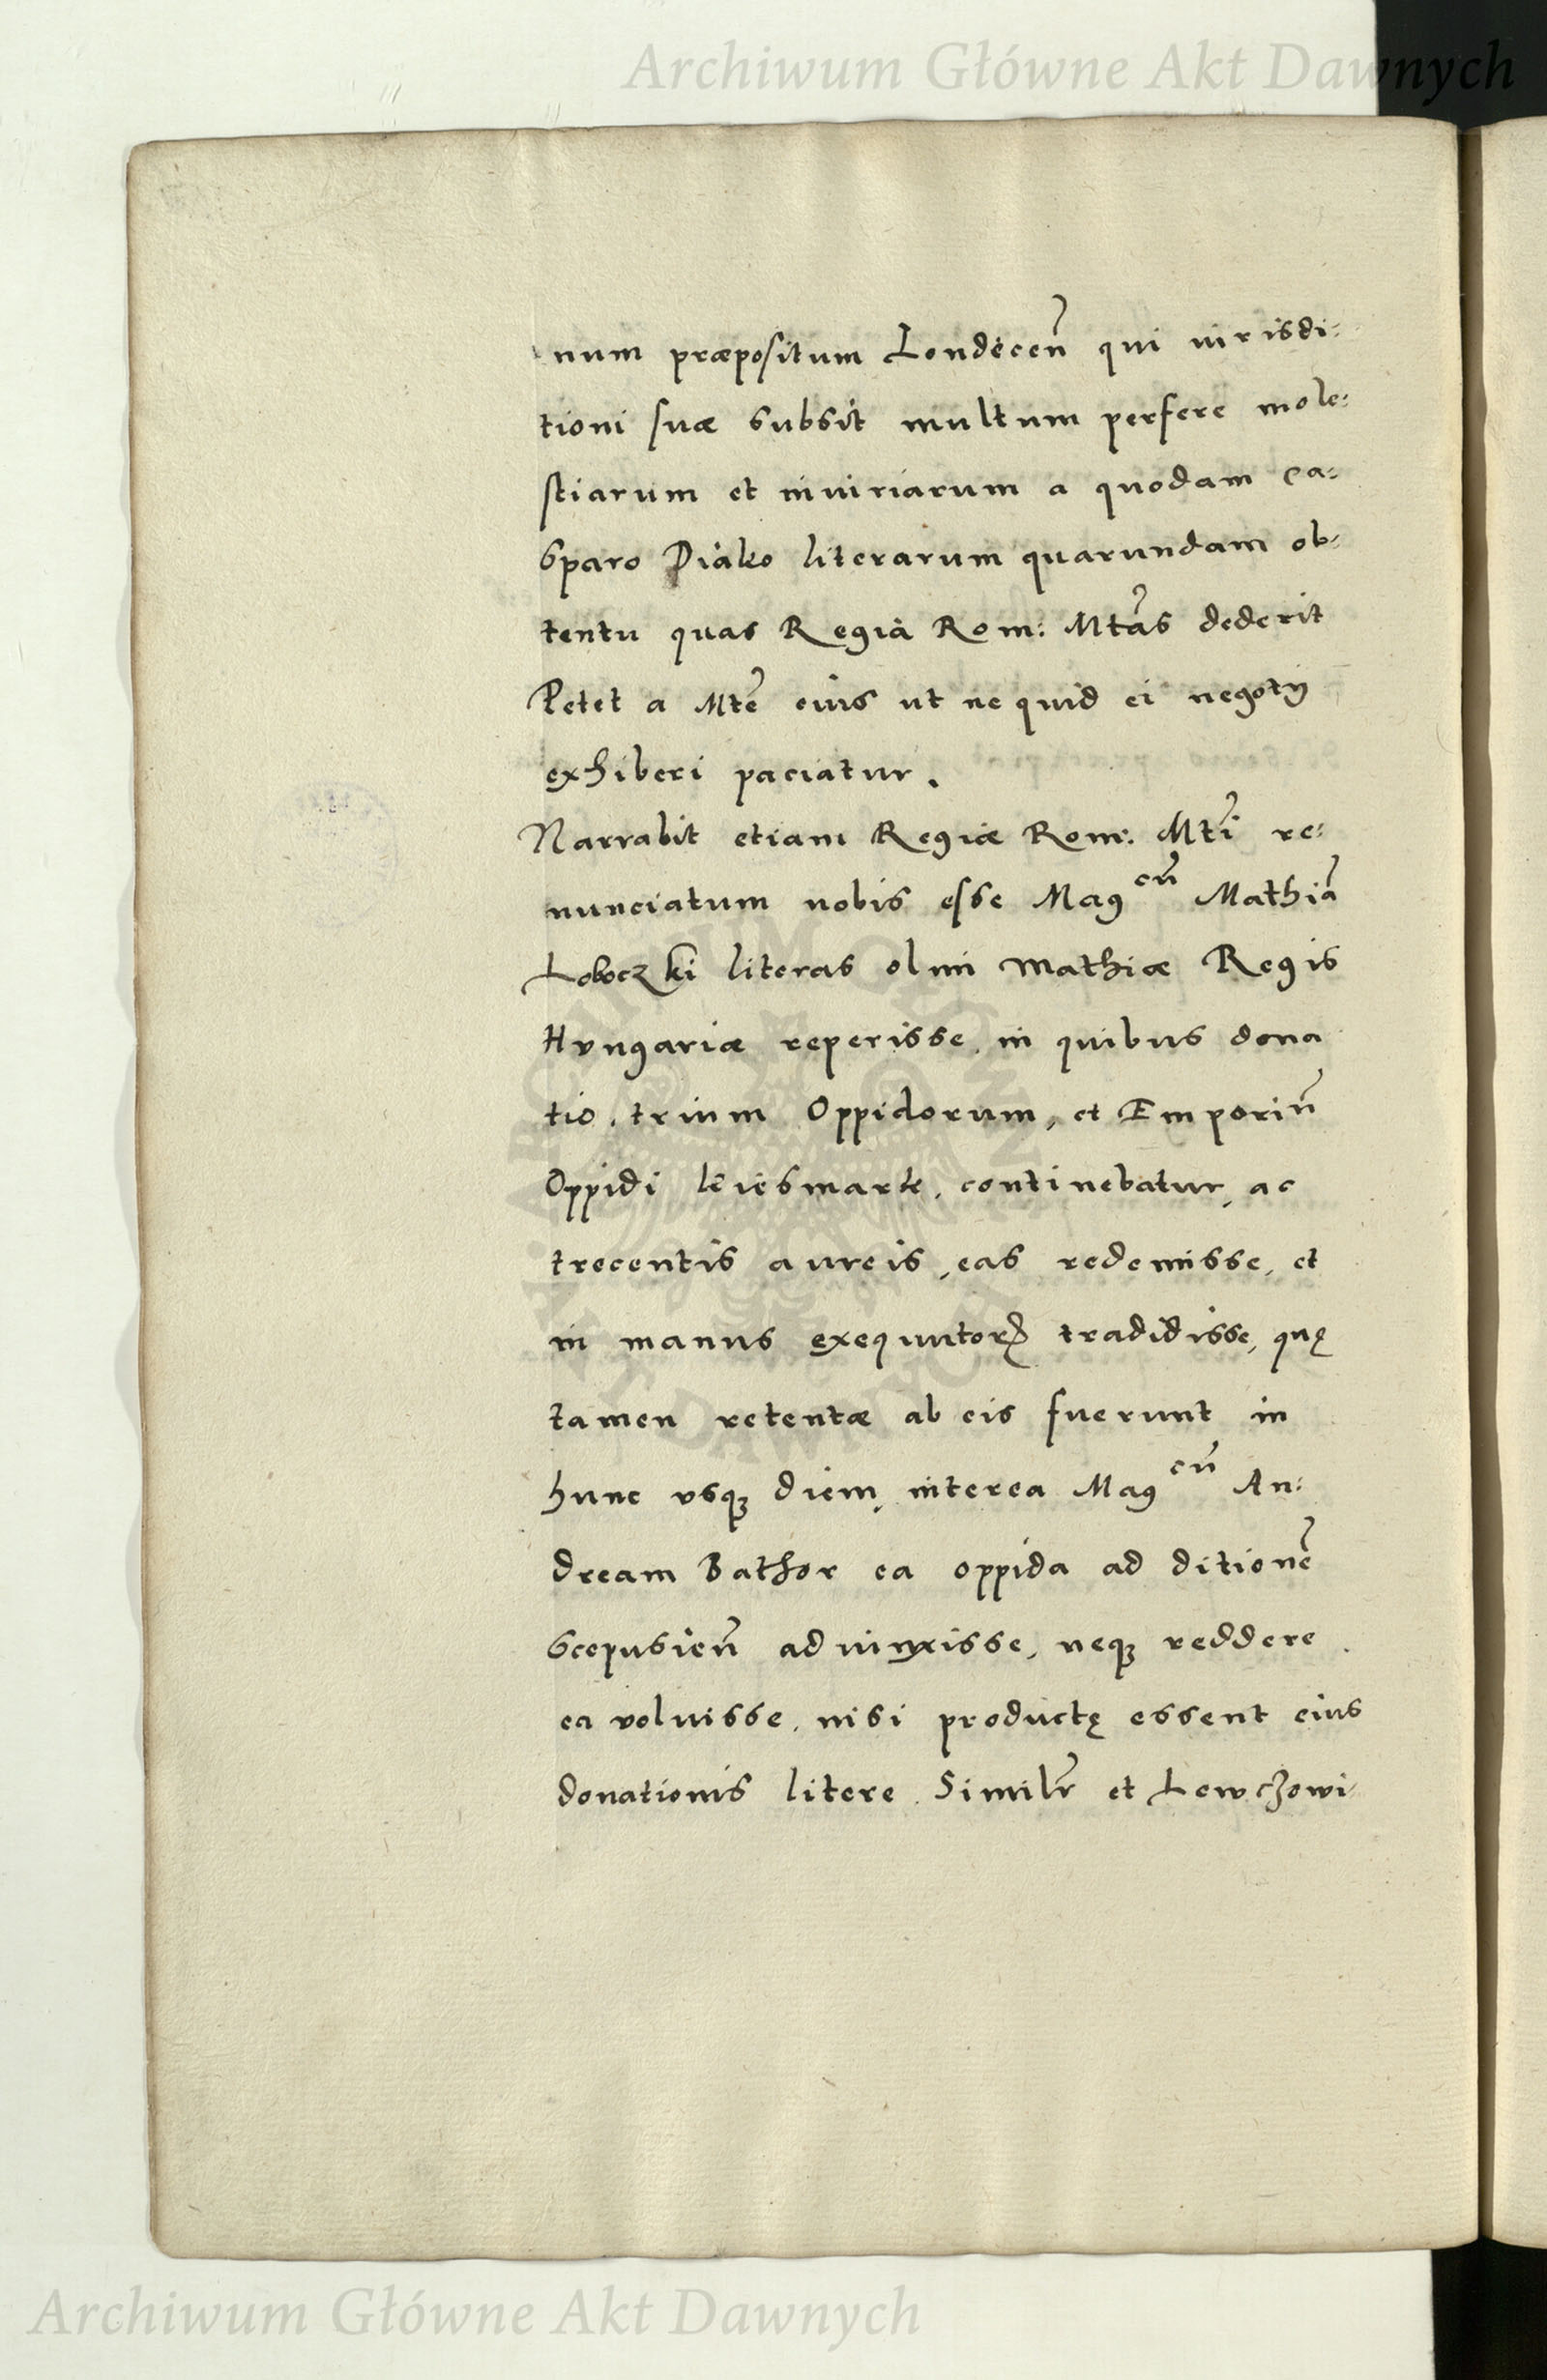 Archiwum Główne Akt Dawnych
num præpositum Londecen̄ qui iurisdi:
tioni suæ subsit multum perfere mole:
stiarum et iniuriarum a quodam Ca:
sparo Diako literarum quarundam ob:
tentu quas Regia Rom: Mtãs dederit
Petet a Mtẽ eius ut ne quid ei negotÿ
exhiberi paciatur.
Narrabit etiam Regiæ Rom: Mtĩ re:
nunciatum nobis esse Mag^cũ Mathiã
Loboczki literas olim Mathiæ Regis
Hungariæ reperisse, in quibus dona
tio, trium Oppidorum, et Emporiũ
Oppidi kiesmark, continebatur, ac
trecentis aureis, eas redemisse, et
in manus exequutorꝝ tradidisse, quę
tamen retentæ ab eis fuerunt in
hunc vsqꝫ diem, interea Mag^cũ An:
dream Bathor ea oppida ad ditionẽ
Scepusien̄ adiunxisse, neqꝫ reddere
ea voluisse, nisi productę essent eius
donationis litere. Simil̃r et Lewczowi:
ARCHIWUM GŁÓWNE AKT DAWNYCH
Archiwum Główne Akt Dawnych